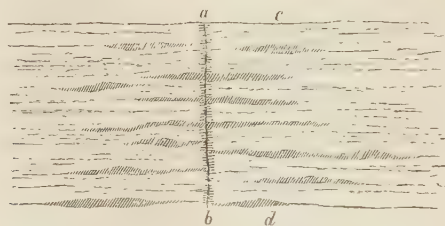 a c
b d